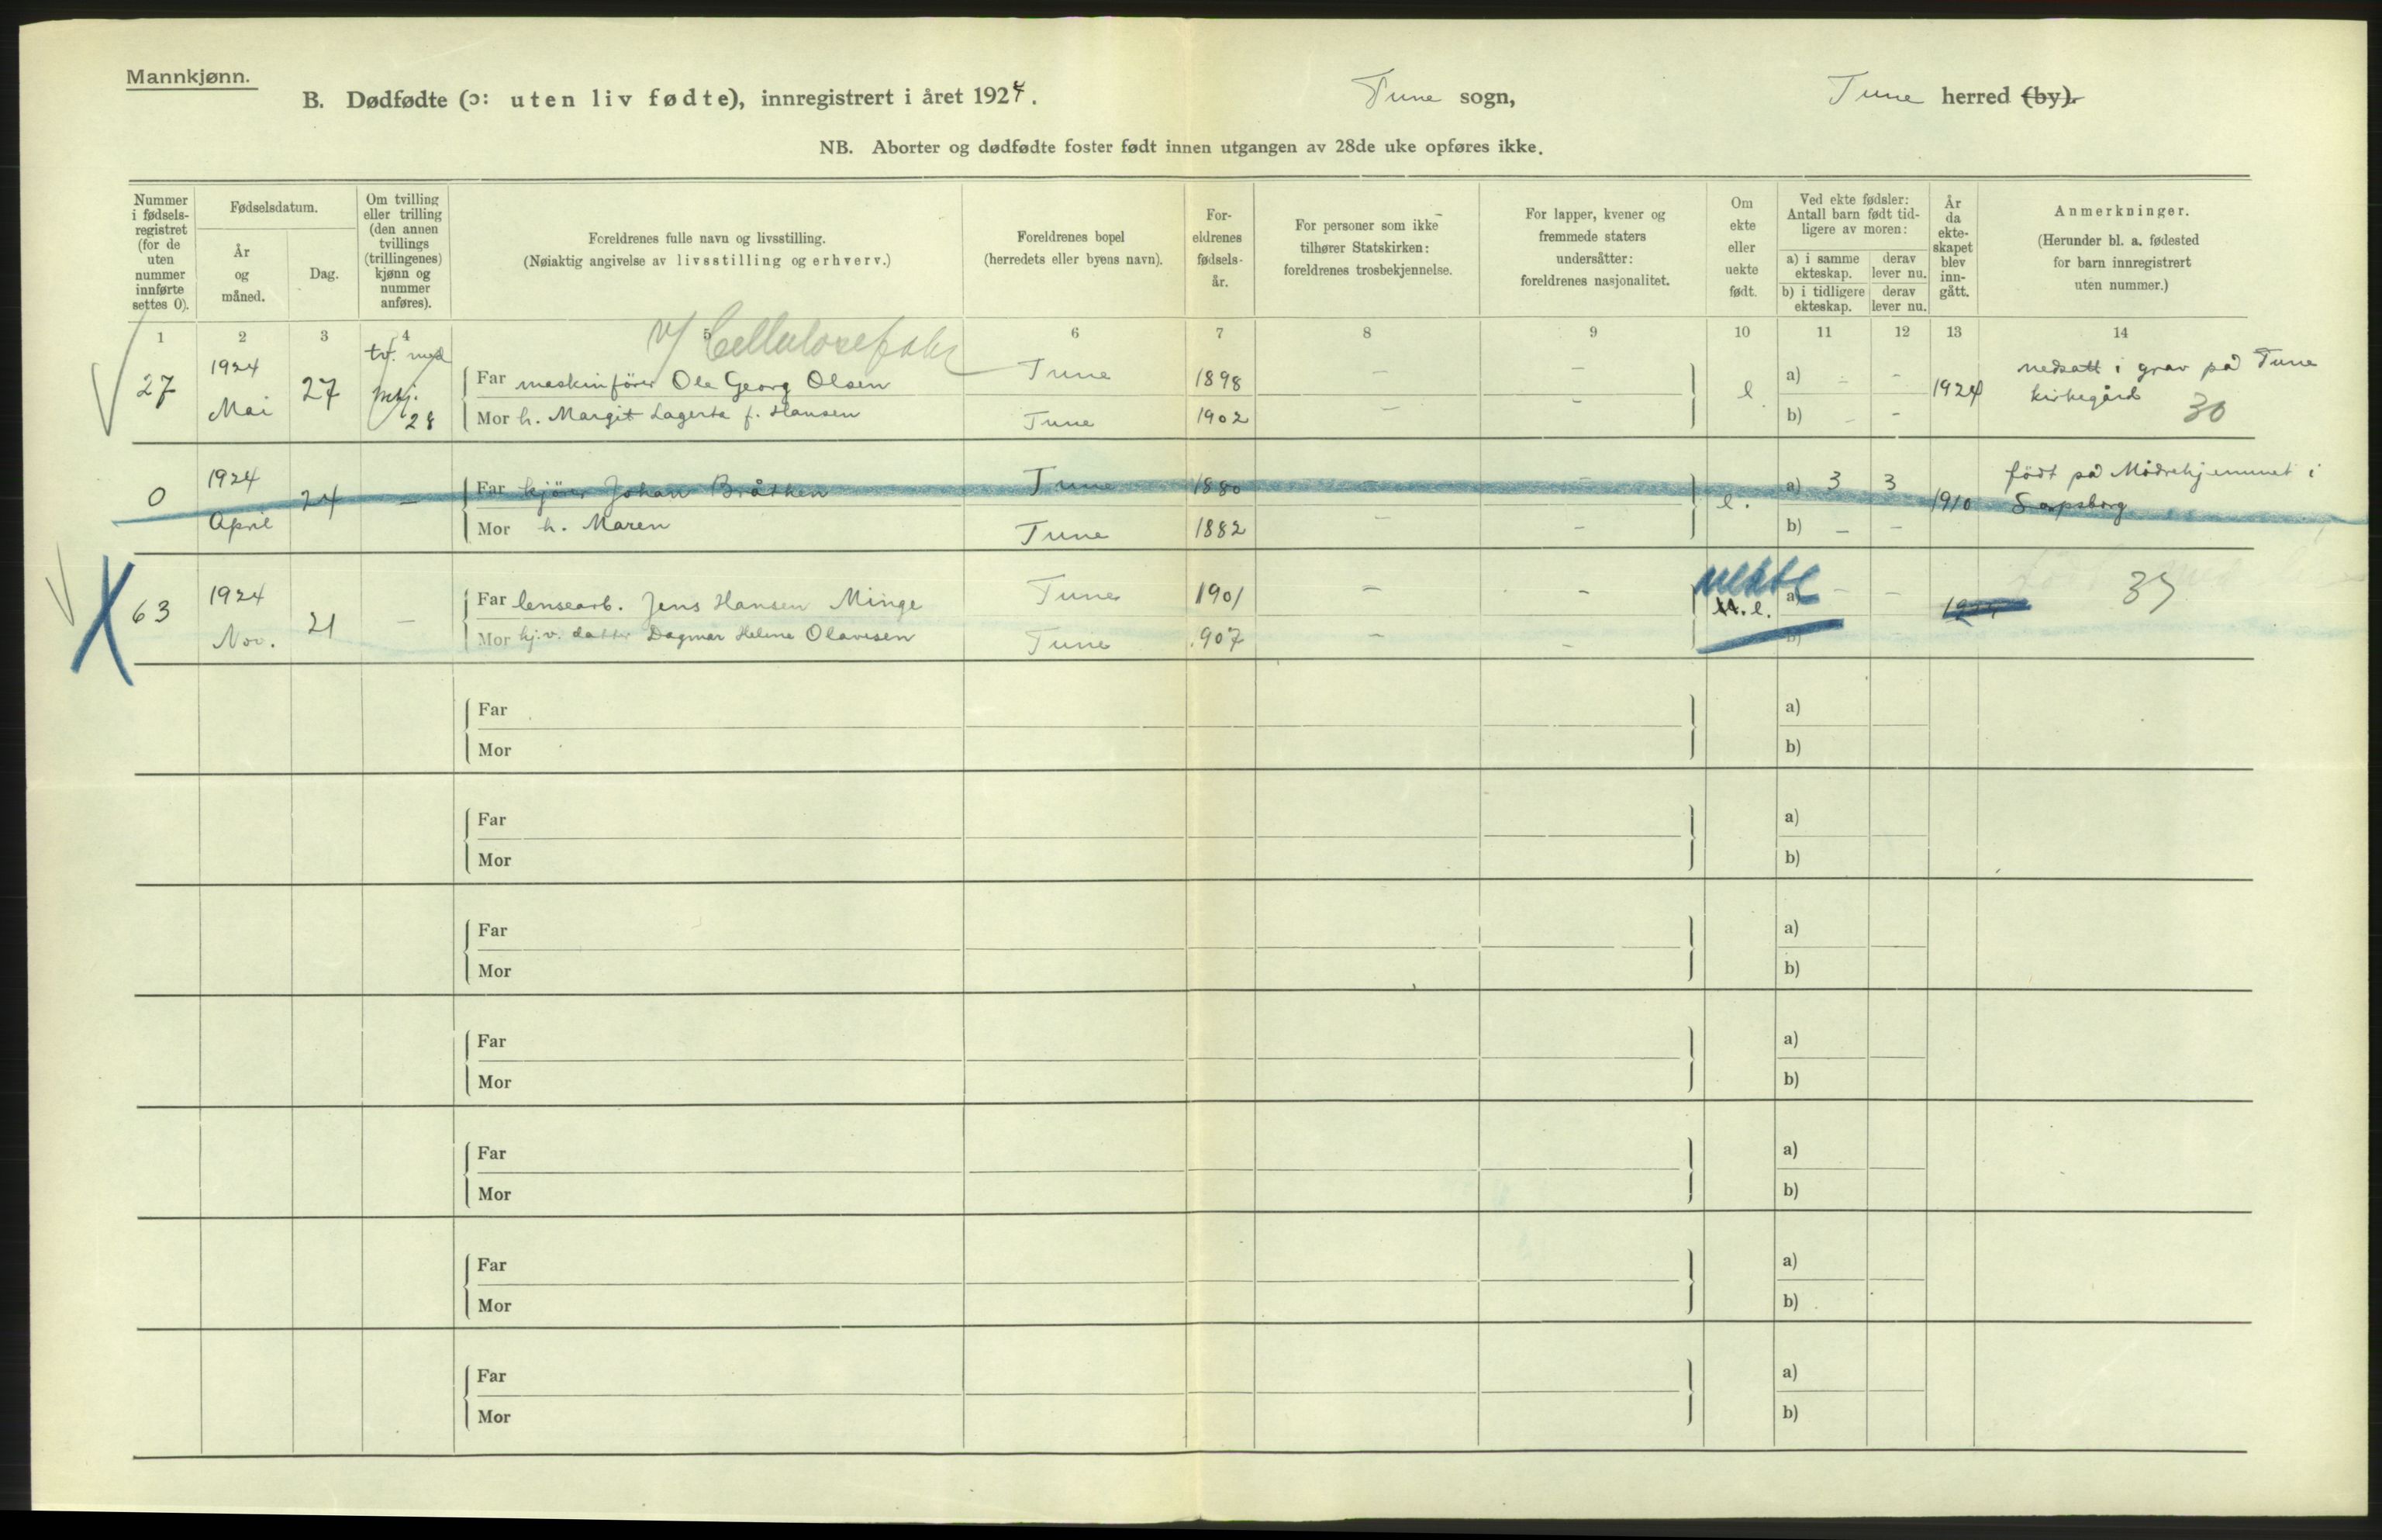 Mannkjønn.
B. Dødfødte (ɔ: uten liv fødte), innregistrert i året 1924. Tune sogn, Tune herred (by).
NB. Aborter og dødfødte foster født innen utgangen av 28de uke opføres ikke.
Nummer i fødsels-registret (for de uten nummer innførte settes 0).
Fødselsdatum.
År og måned.
Dag.
Om tvilling eller trilling (den annen tvillings (trillingenes) kjønn og nummer anføres).
Foreldrenes fulle navn og livsstilling.
(Nøiaktig angivelse av livsstilling og erhverv.)
Foreldrenes bopel
(herredets eller byens navn).
For-eldrenes fødsels-år.
For personer som ikke tilhører Statskirken: foreldrenes trosbekjennelse.
For lapper, kvener og fremmede staters undersåtter: foreldrenes nasjonalitet.
Om ekte eller uekte født.
Ved ekte fødsler: Antall barn født tid-ligere av moren:
a) i samme ekteskap.
derav lever nu.
b) i tidligere ekteskap.
derav lever nu.
År da ekte-skapet blev inn-gått.
Anmerkninger.
(Herunder bl. a. fødested for barn innregistrert uten nummer.)
1 2 3 4 5 6 7 8 9 10 11 12 13 14
v/ Cellulosefabr
27 1924 Mai 27 tv. med mkj. 28
Far maskinfører Ole Georg Olsen Tune 1898 – – e a) – – 1924 nedsatt i grav på Tune kirkegård 30
Mor h. Margit Lagerta f. Hansen Tune 1902 – – b) – –
0 1924 April 24 –
Far kjører Johan Bråthen Tune 1880 – – e. a) 3 3 1910 født på Mødrehjemmet i Sarpsborg
Mor h. Maren Tune 1882 – – b) – –
63 1924 Nov. 21 –
Far lensearb. Jens Hansen Minge Tune 1901 – – uekte a) – – 1924
Mor hj.v. datter Dagmar Helene Olavesen Tune 1907 – – b)
Far a)
Mor b)
Far a)
Mor b)
Far a)
Mor b)
Far a)
Mor b)
Far a)
Mor b)
Far a)
Mor b)
Far a)
Mor b)